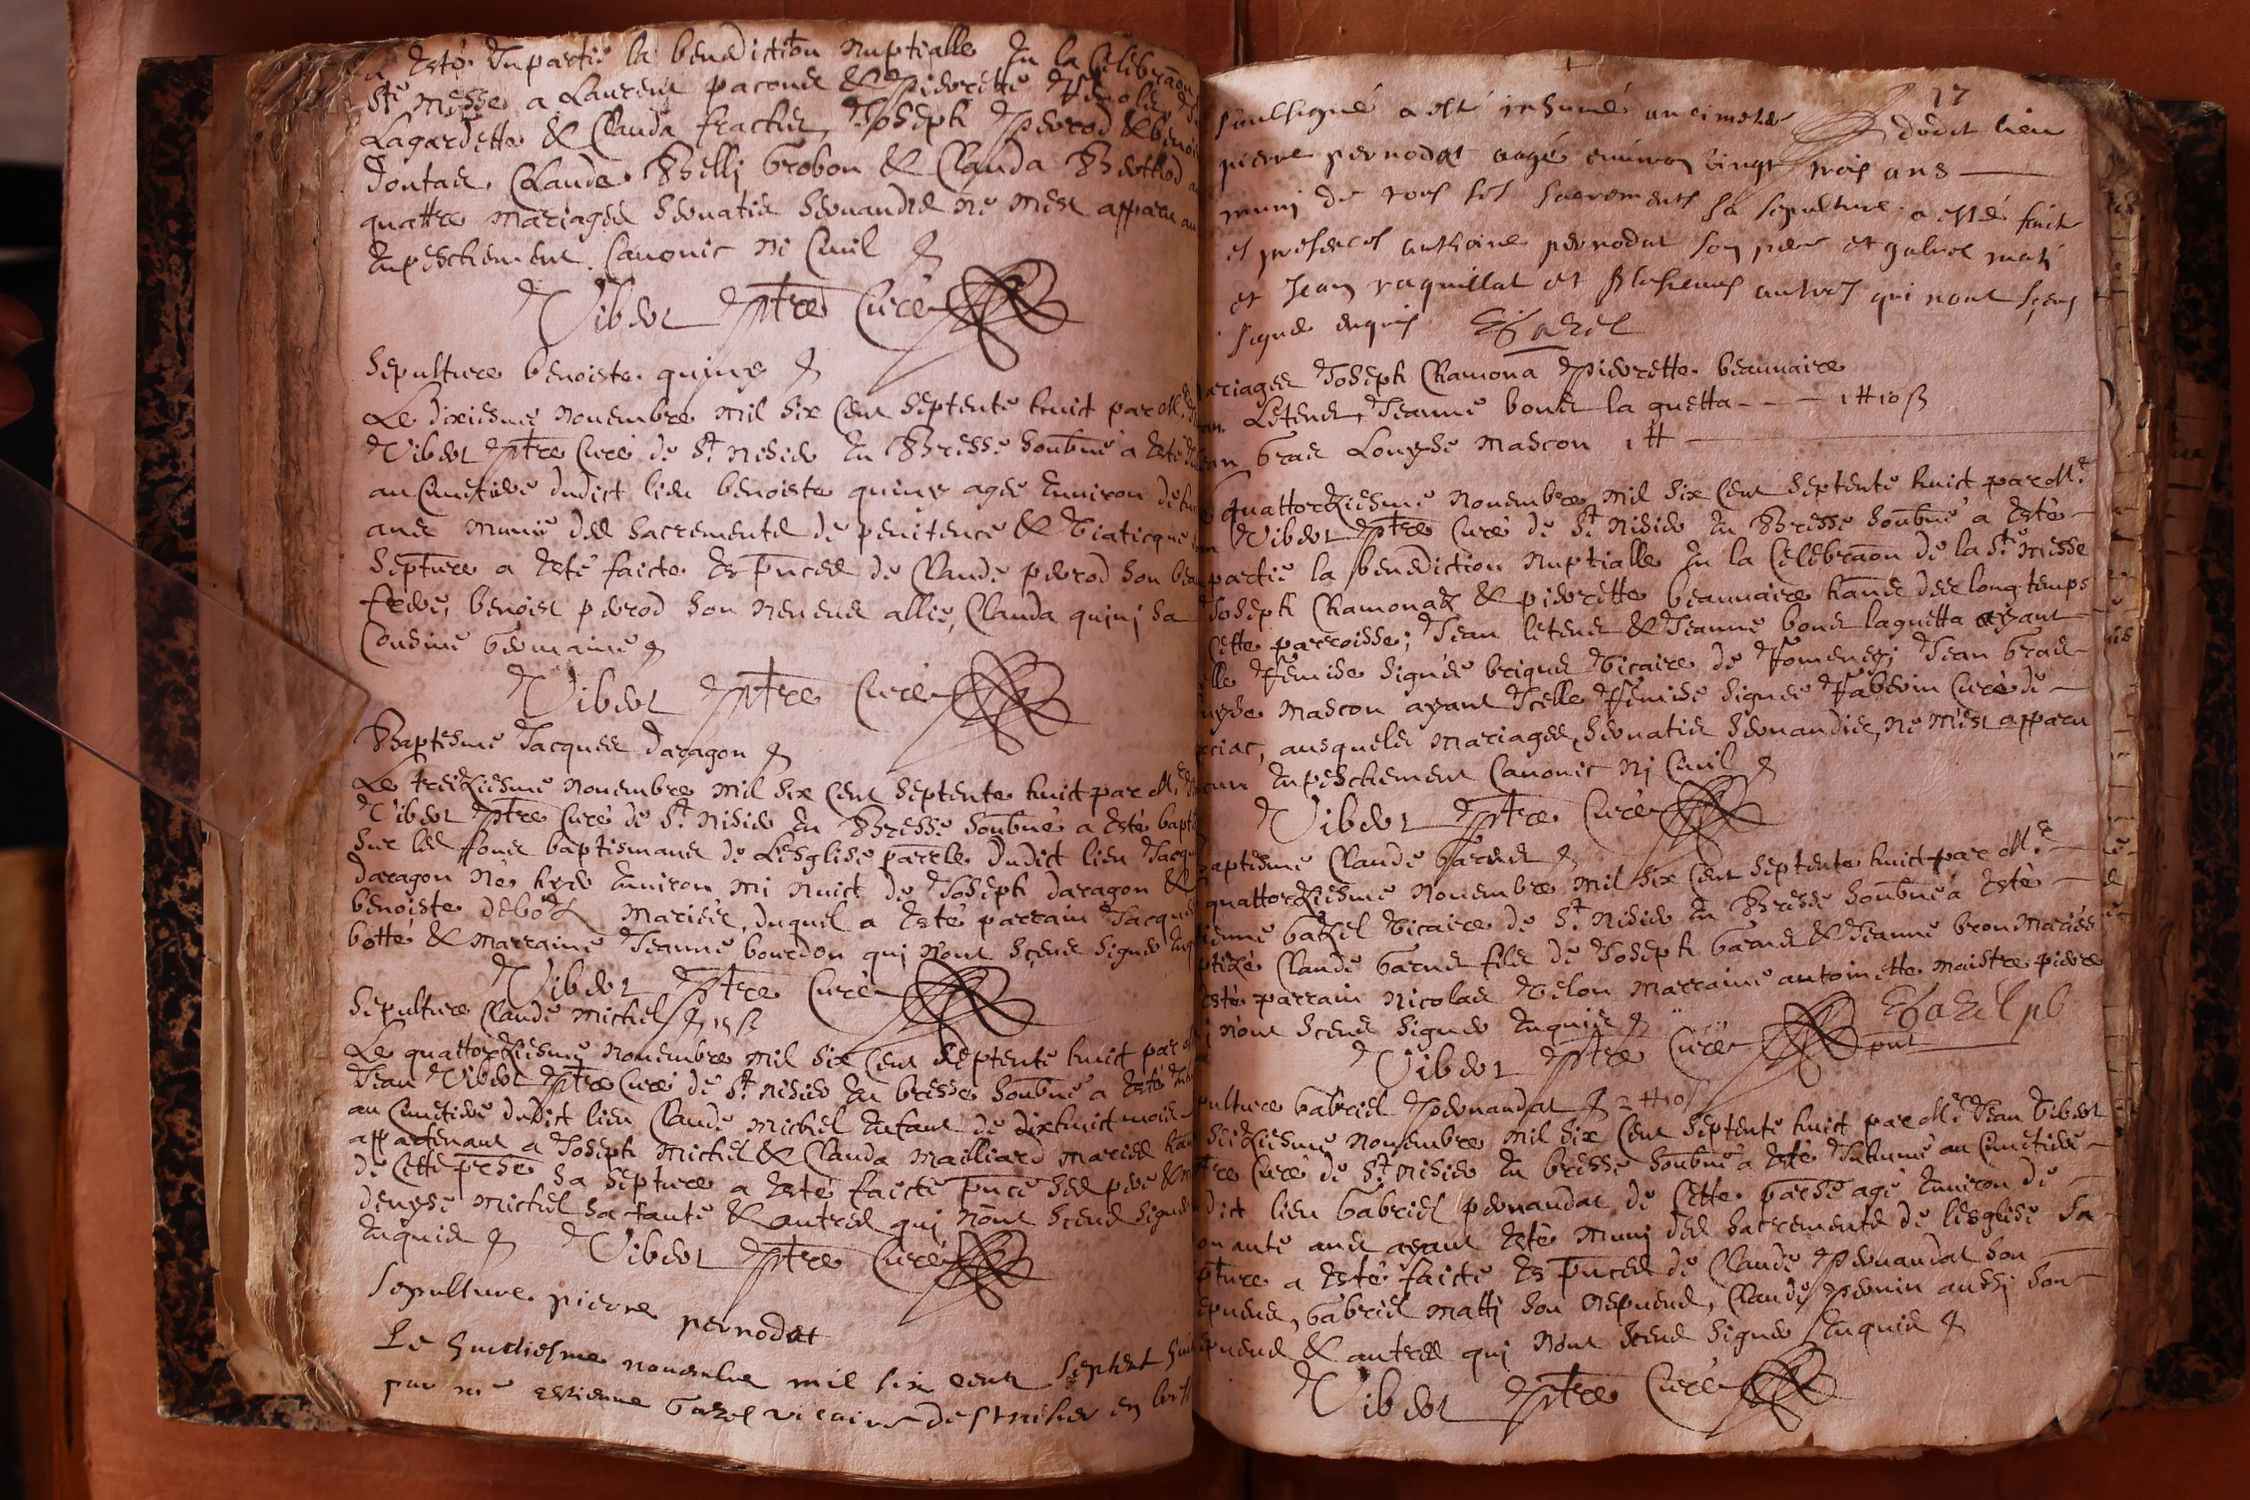 a Esté Inpartie la benediction Nuptialle En la Celebraõn
Ste Messe a Laurent pacoud & Pierrette
Lagardette & Clauda frachet, Joseph Perrod & benoi
Claude Belly Grobon & Clauda Berthod
quattre mariages seruatis seruandis ne mest apparu au
Enpeschement Canonic ni Ciuil
Viber Pbtre Curé
Sepulture benoiste quiny
Le dixiesme nouembre mil six Cent septente huict par Mre
Viber Pbtre Curé de St Nisier En Bresse soubné a Esté
au Cimetiere dudict lieu benoiste quiny agee Enuiron de
ans munie des sacrements de penitence & Viaticque
Septure a Esté faicte Es pnces de Claude perrod son beau
frere, benoist perrod son neueu allié, Clauda quiny sa
Cousine Germaine
Viber Pbtre Curé
Baptesme Jacques daragon
Le treiziesme Nouembre mil six Cent septente huict par Mre
Viber Pbtre Curé de St Nisier En Bresse soubné a Esté bapt
sur les fons baptismaus de Lesglise parrle dudict lieu Jacqu
daragon né hyer Enuiron mi nuict de Joseph daragon &
benoiste mariés, duquel a Esté parrain Jacques
botte & marraine Jeanne bourdon qui nont sceus signer Enq
Viber Pbtre Curé
Sepulture Claude Michel 15 ß
Le quattorziesme nouembre mil six Cent septente huict par M
Jean Viber Pbtre Curé de St Nisier En bresse soubné a Esté
au Cimetiere dudict lieu Claude Michel Enfant de dixhuict mois
appartenant a Joseph Michel & Clauda Mailliard mariés
de Cette prsse sa septure a Esté faicte pnce ses pere &
denyse Michel sa tante & autres qui nont sceus signer
Enquis Viber Pbtre Curé
Sepulture pierre pernodat
Le huictiesme nouembre mil six cent septent hui
par mre estienne Gazel vicaire de st nisier en bress
17
soubsigné a esté inhumé au cimetier dudit lieu
pierre pernodat aagé enuiron vingt trois ans
muny de tous les sacrements sa sepulture a esté faicte
es presences anthoine pernodat son pere et gabriel mati
et Jean raquillat et plusieurs autres qui nont sceus
signer enquis Gazel
ariages Joseph Chamona Pierrette beauuaire
Letend, Jeanne bond la guetta 1 ₶ 10 ß
Gras Louyse mascon 1 ₶
quattorziesme nouembre mil six Cent septente huict par Mre
Viber Pbtre Curé de St Nisier En Bresse soubné a Esté
partie la benediction nuptialle En la Celebraõn de la Ste messe
Joseph Chamonaz & pierrette beauuaire hans des long temps
Cette parroisse; Jean letend & Jeanne bond laguetta ayant
elle Remise signée brigud Vicaire de Romeney; Jean Gras
uyse mascon ayant Jcelle Remise signée Curé de
ciat, ausquels mariages, seruatis seruandis, ne mest apparu
cun Enpeschement Canonic Ni Ciuil
Viber Pbtre Curé
aptesme Claude Garnd
quattorziesme Nouembre mil six Cent septente huict par Mre
tienne Gazel Vicaire de St Nisier En Bresse soubné a Esté
ptizé Claude Garnd fils de Joseph Garnd & Jeanne bron mariés
esté parrain Nicolas Velon marraine antoinette maistre pierre
i nont sceus signer Enquis
Viber Pbtre Curé Gazel pb
pnt
pulture Gabriel Pernandat 2 ₶ 10 ß
seiziesme nouembre mil six Cent septente huict par Mre Jean Viber
tre Curé de St Nisier En bresse soubné a Esté Inhumé au Cimetiere
dict lieu Gabriel pernandat de Cette parsse agé Enuiron de
ante ans ayant Esté muni des sacrements de lesglise sa
pture a Esté faicte Es pnces de Claude Pernandat son
epueus, Gabriel Matti son Nepueu, Claude Pernin aussi son
epueus & autres qui nont sceus signer Enquis
Viber Pbtre Curé